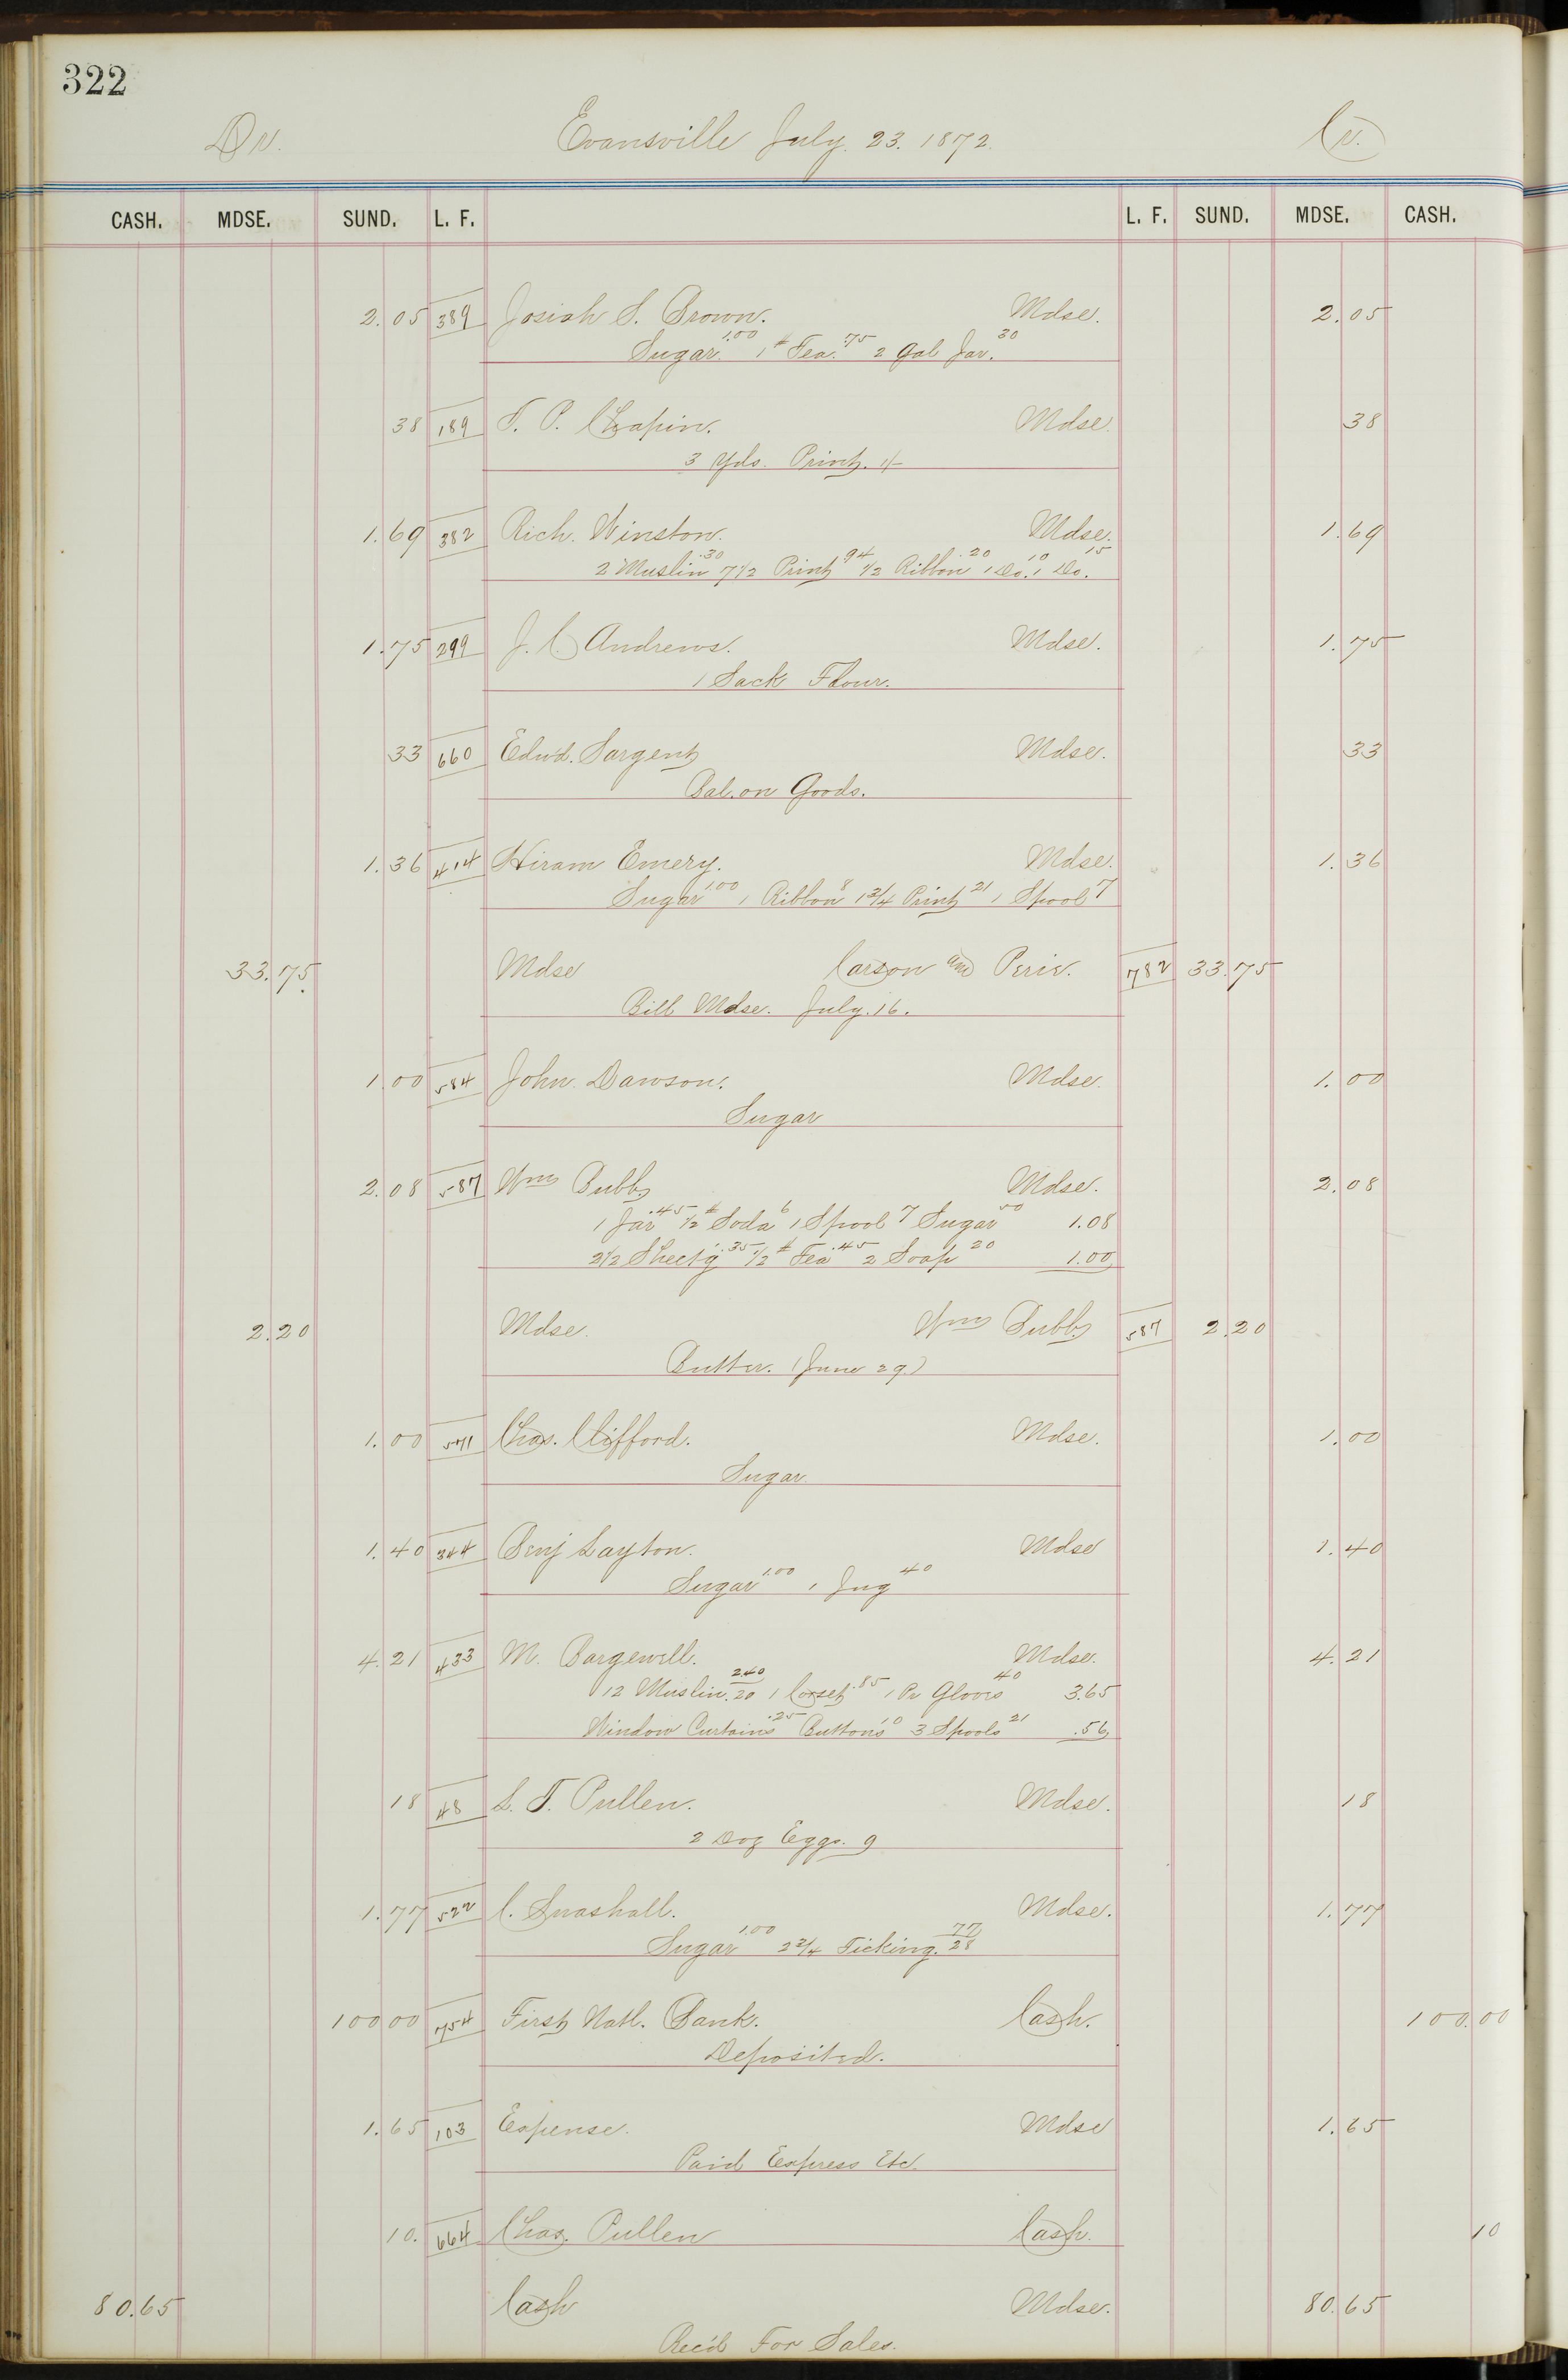 322
Dr. Evansville July. 23. 1872. Cr.
CASH. MDSE. SUND. L. F. L. F. SUND. MDSE. CASH.
2.05 389 Josiah S. Brown. Mdse. 2.05
Sugar. 1.00 1 # Tea. .75 2 Gal Jar. 30
38 189 T. P. Chapin. Mdse. 38
3 Yds. Print. 1/-
1.69 382 Rich. Winston. Mdse. 1.69
2 Muslin .30 7 1/2 Print 94 1/2 Ribbon .20 1 Do. 10 1 Do. 15
1.75 299 J. C. Andrews. Mdse. 1.75
1 Sack Flour.
33 660 Edwd. Sargent Mdse. 33
Bal. on Goods.
1.36 414 Hiram Emery. Mdse. 1.36
Sugar 1.00 1 Ribbon 8 1 3/4 Print 21 1 Spool 7
33.75 Mdse Carson and Pirie. 782 33.75
Bill Mdse. July. 16.
1.00 584 John Dawson. Mdse. 1.00
Sugar
2.08 587 Wm Bubb Mdse. 2.08
1 Jar .45 1/2 # Soda 6 1 Spool 7 Sugar 50 1.08
2 1/2 Sheet'g .35 1/2 # Tea .45 2 Soap 20 1.00
2.20 Mdse. Wm Bubb 587 2.20
Butter. (June 29.)
1.00 571 Chas. Clifford. Mdse. 1.00
Sugar
1.40 344 Benj Layton. Mdse 1.40
Sugar 1.00 1 Jug 40
4.21 433 M. Bargewell. Mdse. 4.21
12 Muslin. 240 20 1 Corset .85 1 Pr Gloves 40 3.65
Window Curtains .25 Buttons 10 3 Spools 21 .56
18 48 L. T. Pullen. Mdse. 18
2 Doz Eggs. 9
1.77 522 C. Snashall. Mdse. 1.77
Sugar 1.00 2 3/4 Ticking. 77 28
100 00 754 First Natl. Bank. Cash. 100.00
Deposited.
1.65 103 Expense. Mdse 1.65
Paid Express Etc.
10. 664 Chas. Pullen Cash. 10
80.65 Cash Mdse. 80.65
Rec'd For Sales.